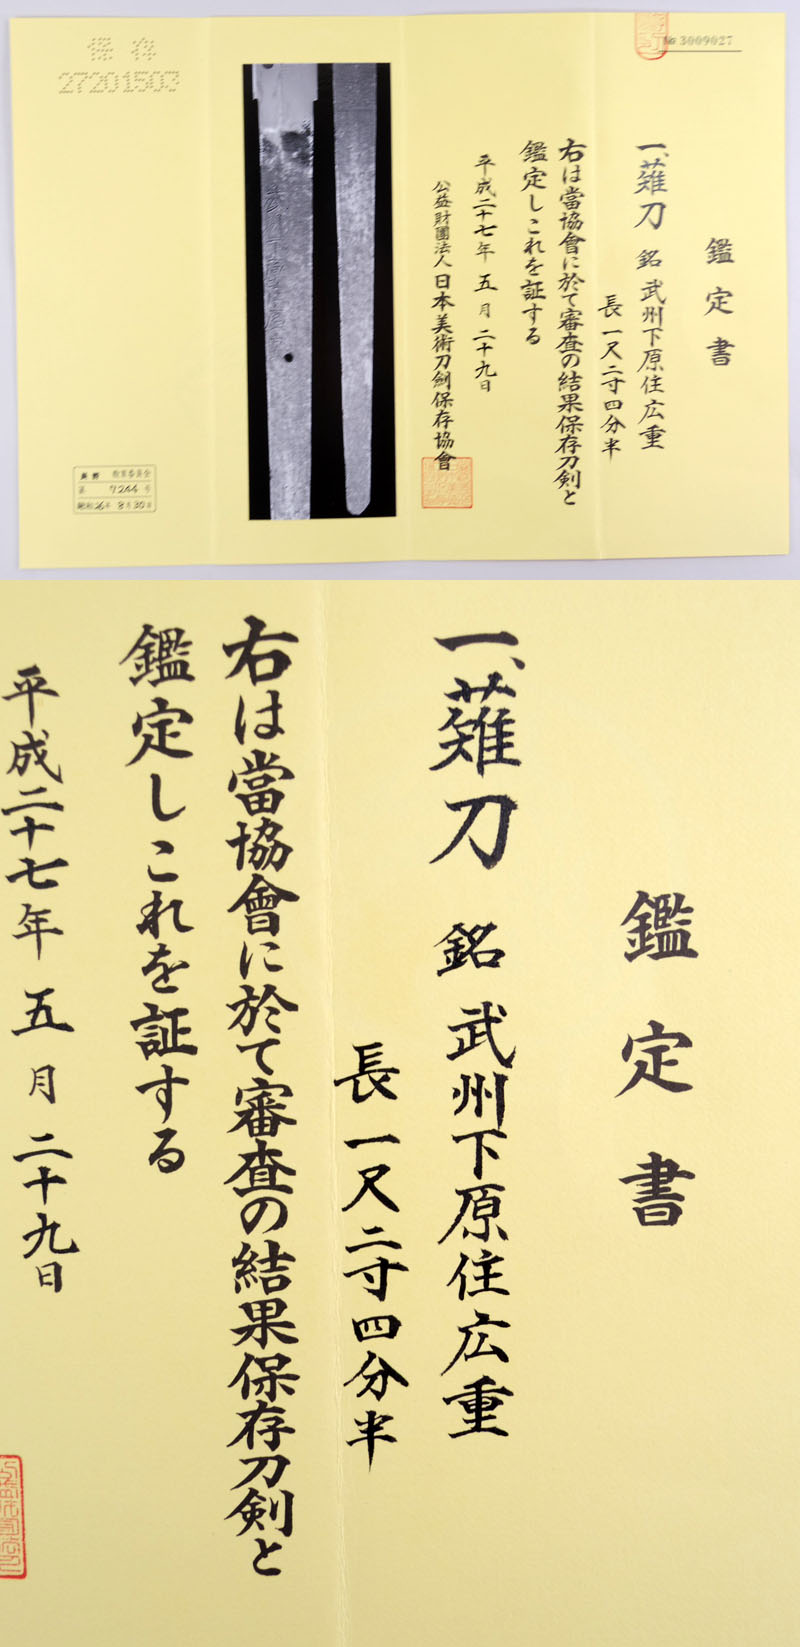 № 3009027
鑑定書
一、薙刀 銘 武州下原住広重
長 一尺二寸四分半
右は當協會に於て審査の結果保存刀剣と
鑑定しこれを証する
平成二十七年 五月 二十九日
公益財團法人 日本美術刀劍保存協會
保存
27201503
教育委員会
第 7244 号
昭和26年 8月30日
鑑定書
一、薙刀 銘 武州下原住広重
長 一尺二寸四分半
右は當協會に於て審査の結果保存刀剣と
鑑定しこれを証する
平成二十七年 五月 二十九日